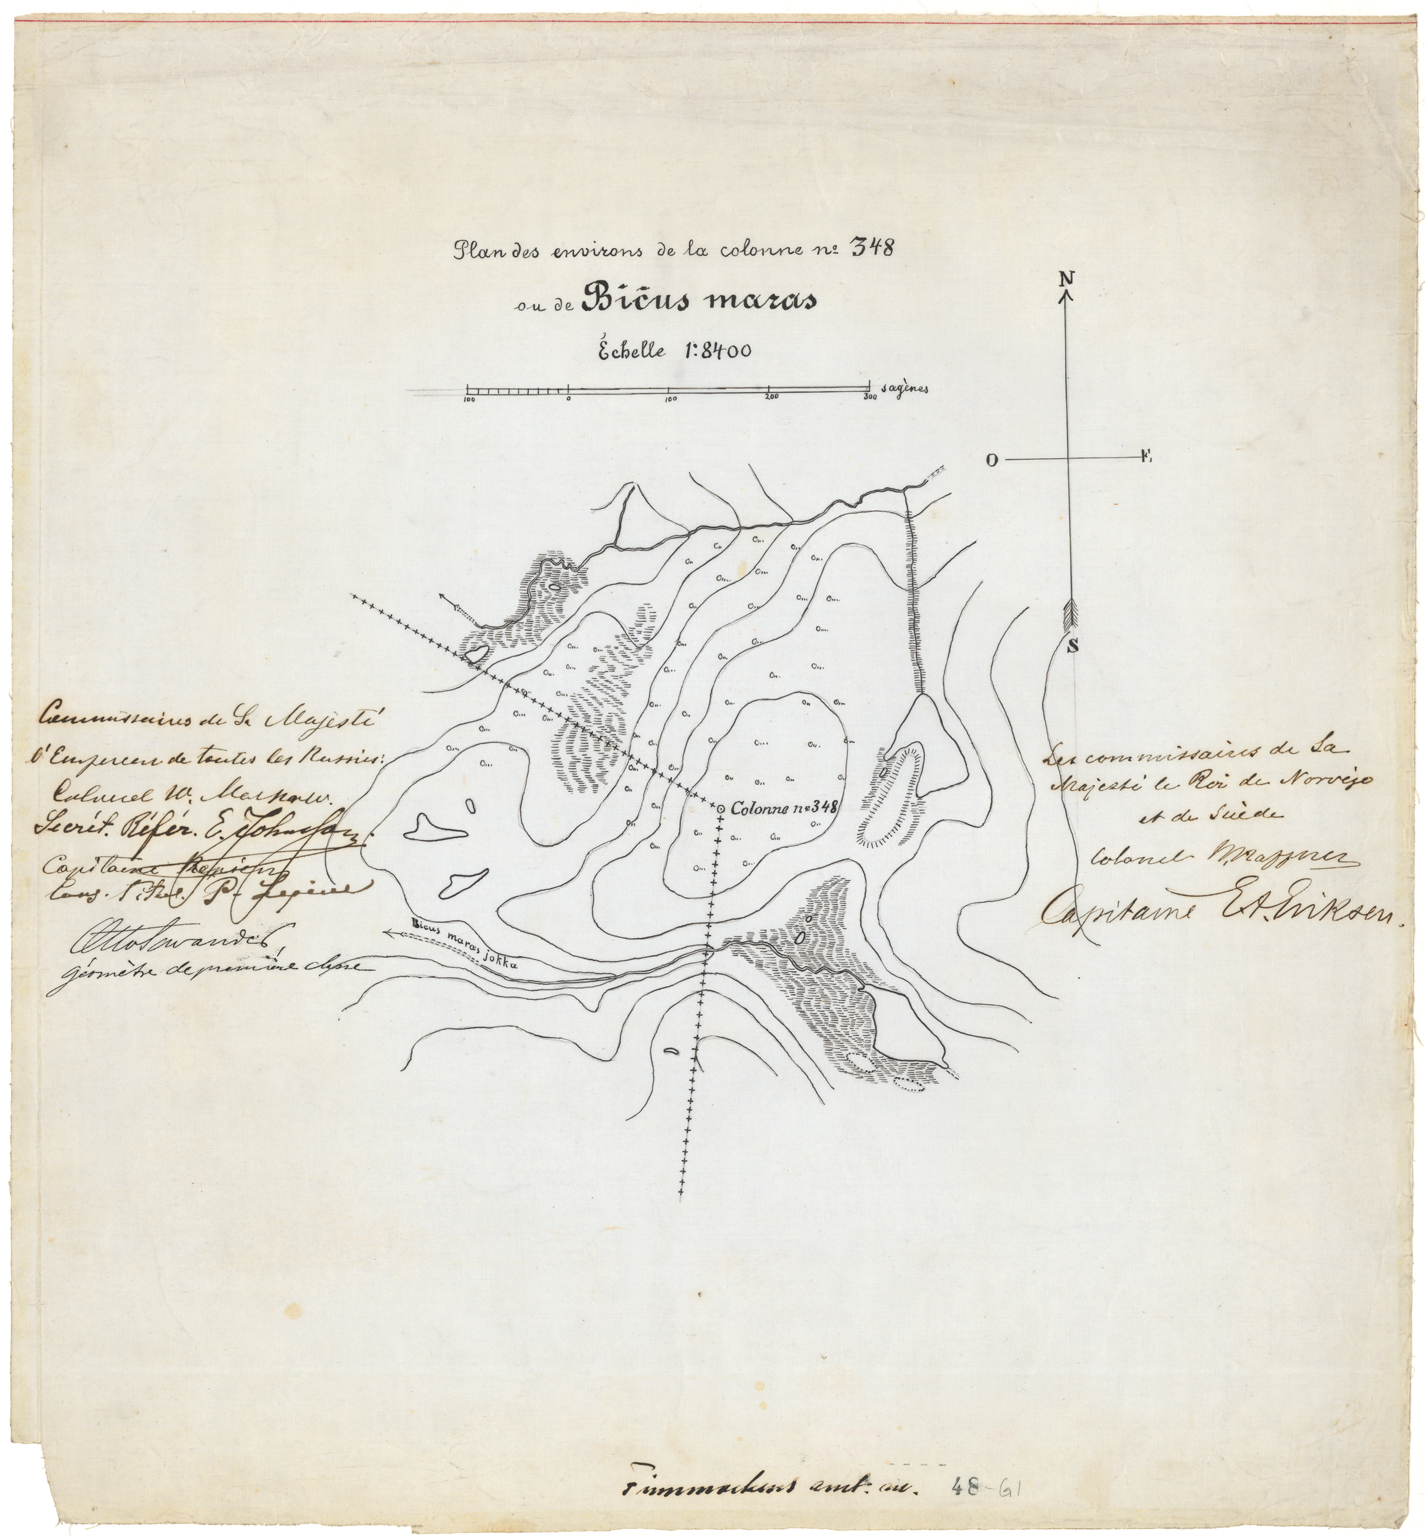 Plan des environs de la colonne nº 348
ou de Bičus maras
Échelle 1:8400
100 0 100 200 300 sagènes
N
O E.
S
Colonne nº 348
Bičus maras jokka
Commissaires de Sa Majesté
l'Empereur de toutes les Russies:
Colonel W.
Secrét. Référ. E. Johnsson
Capitaine
P.
géomètre de première classe
Les commissaires de Sa
Majesté le Roi de Norvège
et de Suède
Colonel
Capitaine E. A. Eriksen.
Finmarkens amt. 48-G1